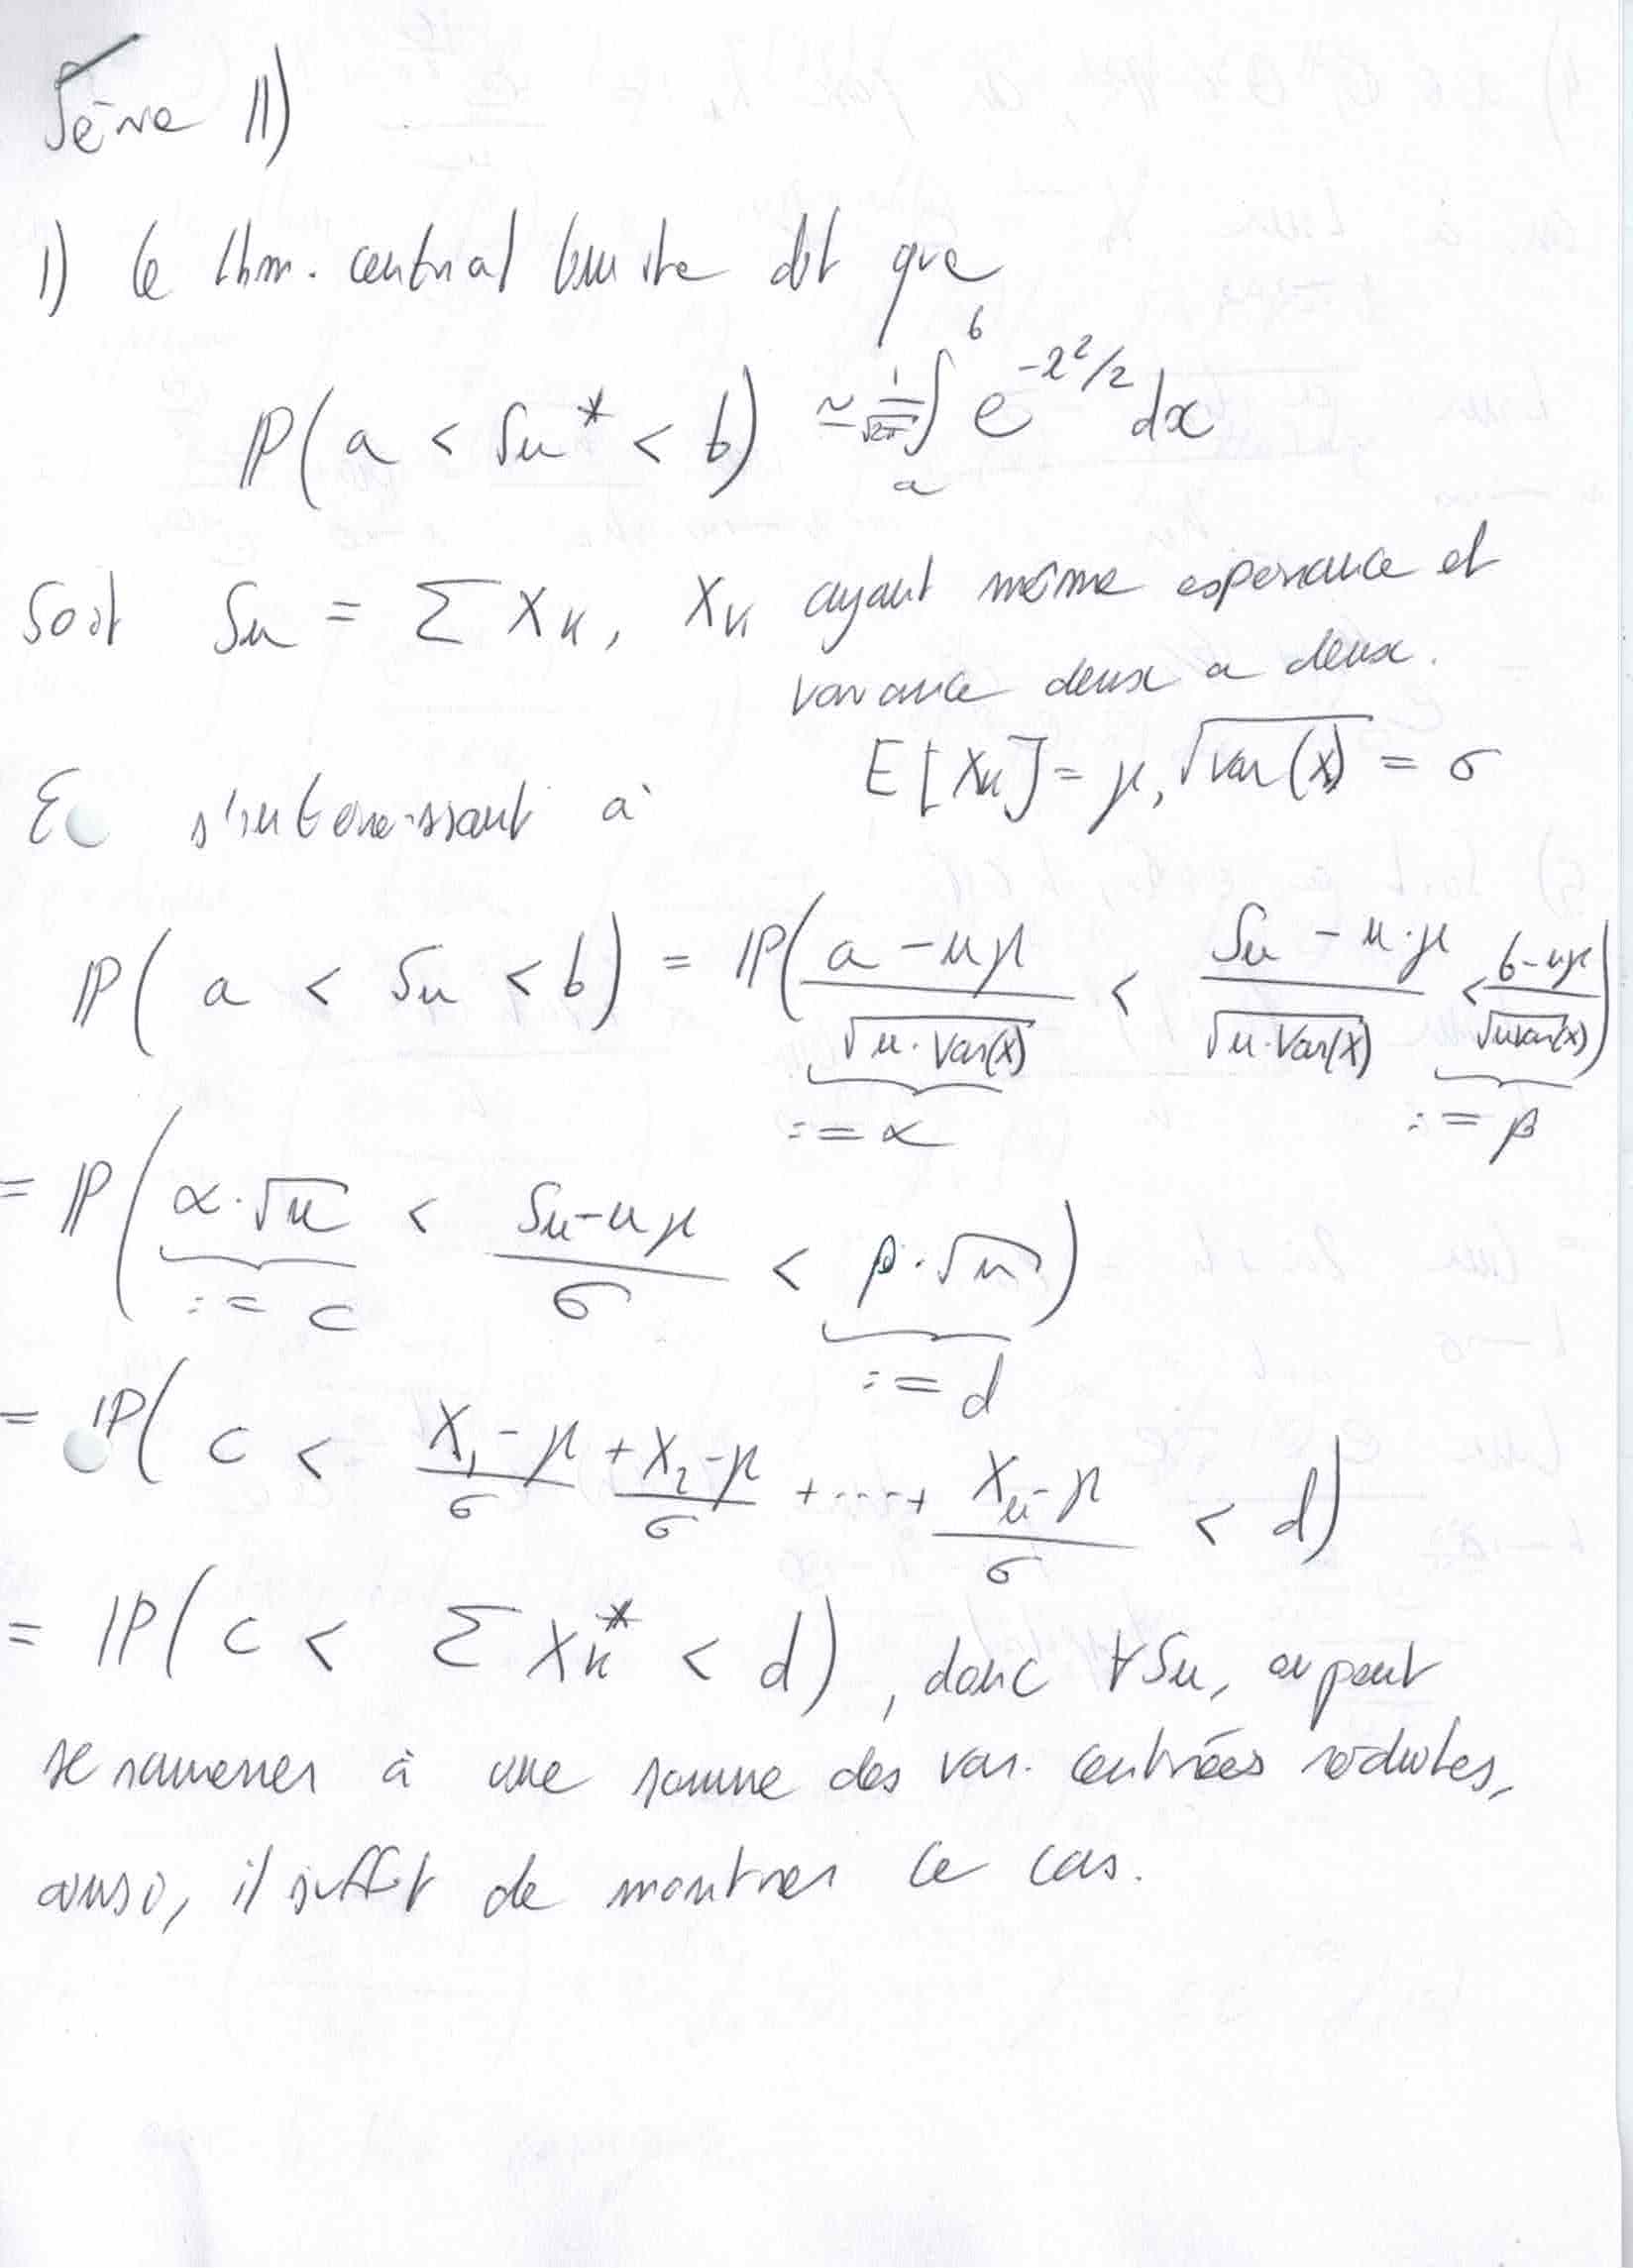 Série 11)
1) Le thm. central limite dit que
ℙ(a < Sn* < b) ≃ 1/√2π ∫_a^b e^{-x²/2} dx
Soit Sn = Σ Xk, Xk ayant même espérance et
variance deux a deux.
E[Xk] = μ, √Var(X) = σ
s'intéressant à
ℙ(a < Sn < b) = ℙ((a - nμ)/√n·Var(X) < (Sn - n·μ)/√n·Var(X) < (b - nμ)/√nVar(X))
:= α := β
= ℙ(α·√n < (Sn - nμ)/σ < β·√n)
:= c := d
= ℙ(c < (X₁ - μ)/σ + (X₂ - μ)/σ + ... + (Xn - μ)/σ < d)
= ℙ(c < Σ Xk* < d), donc ∀Sn, on peut
se ramener à une somme des var. centrées réduites,
ainsi, il suffit de montrer ce cas.